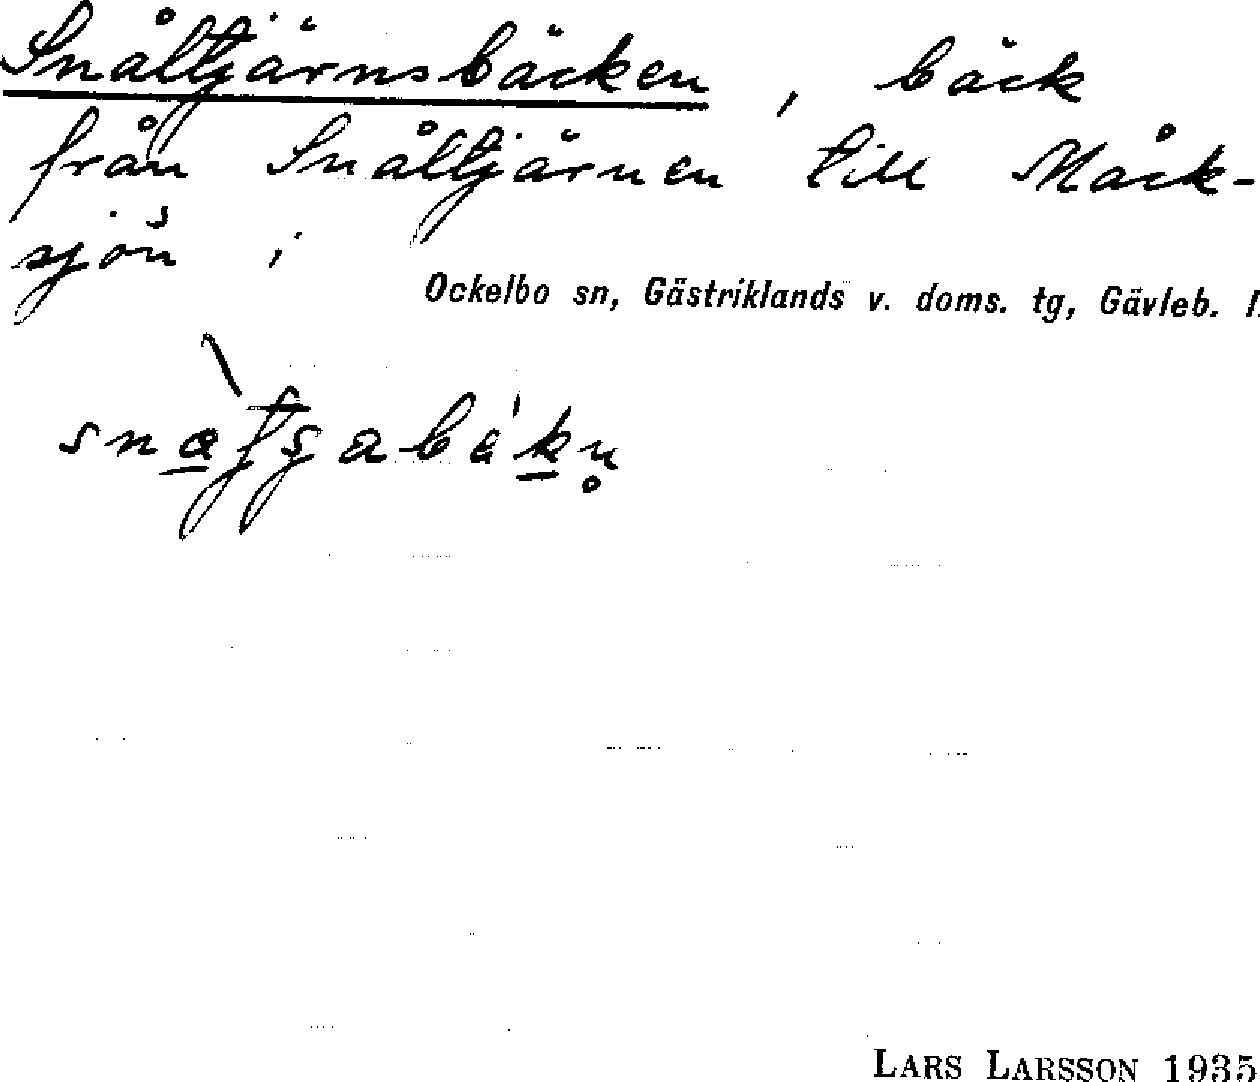 Snåltjärnsbäcken, bäck
från Snåltjärnen till Måck-
sjön i
Ockelbo sn, Gästriklands v. doms. tg, Gävleb. l.
LARS LARSSON 1935